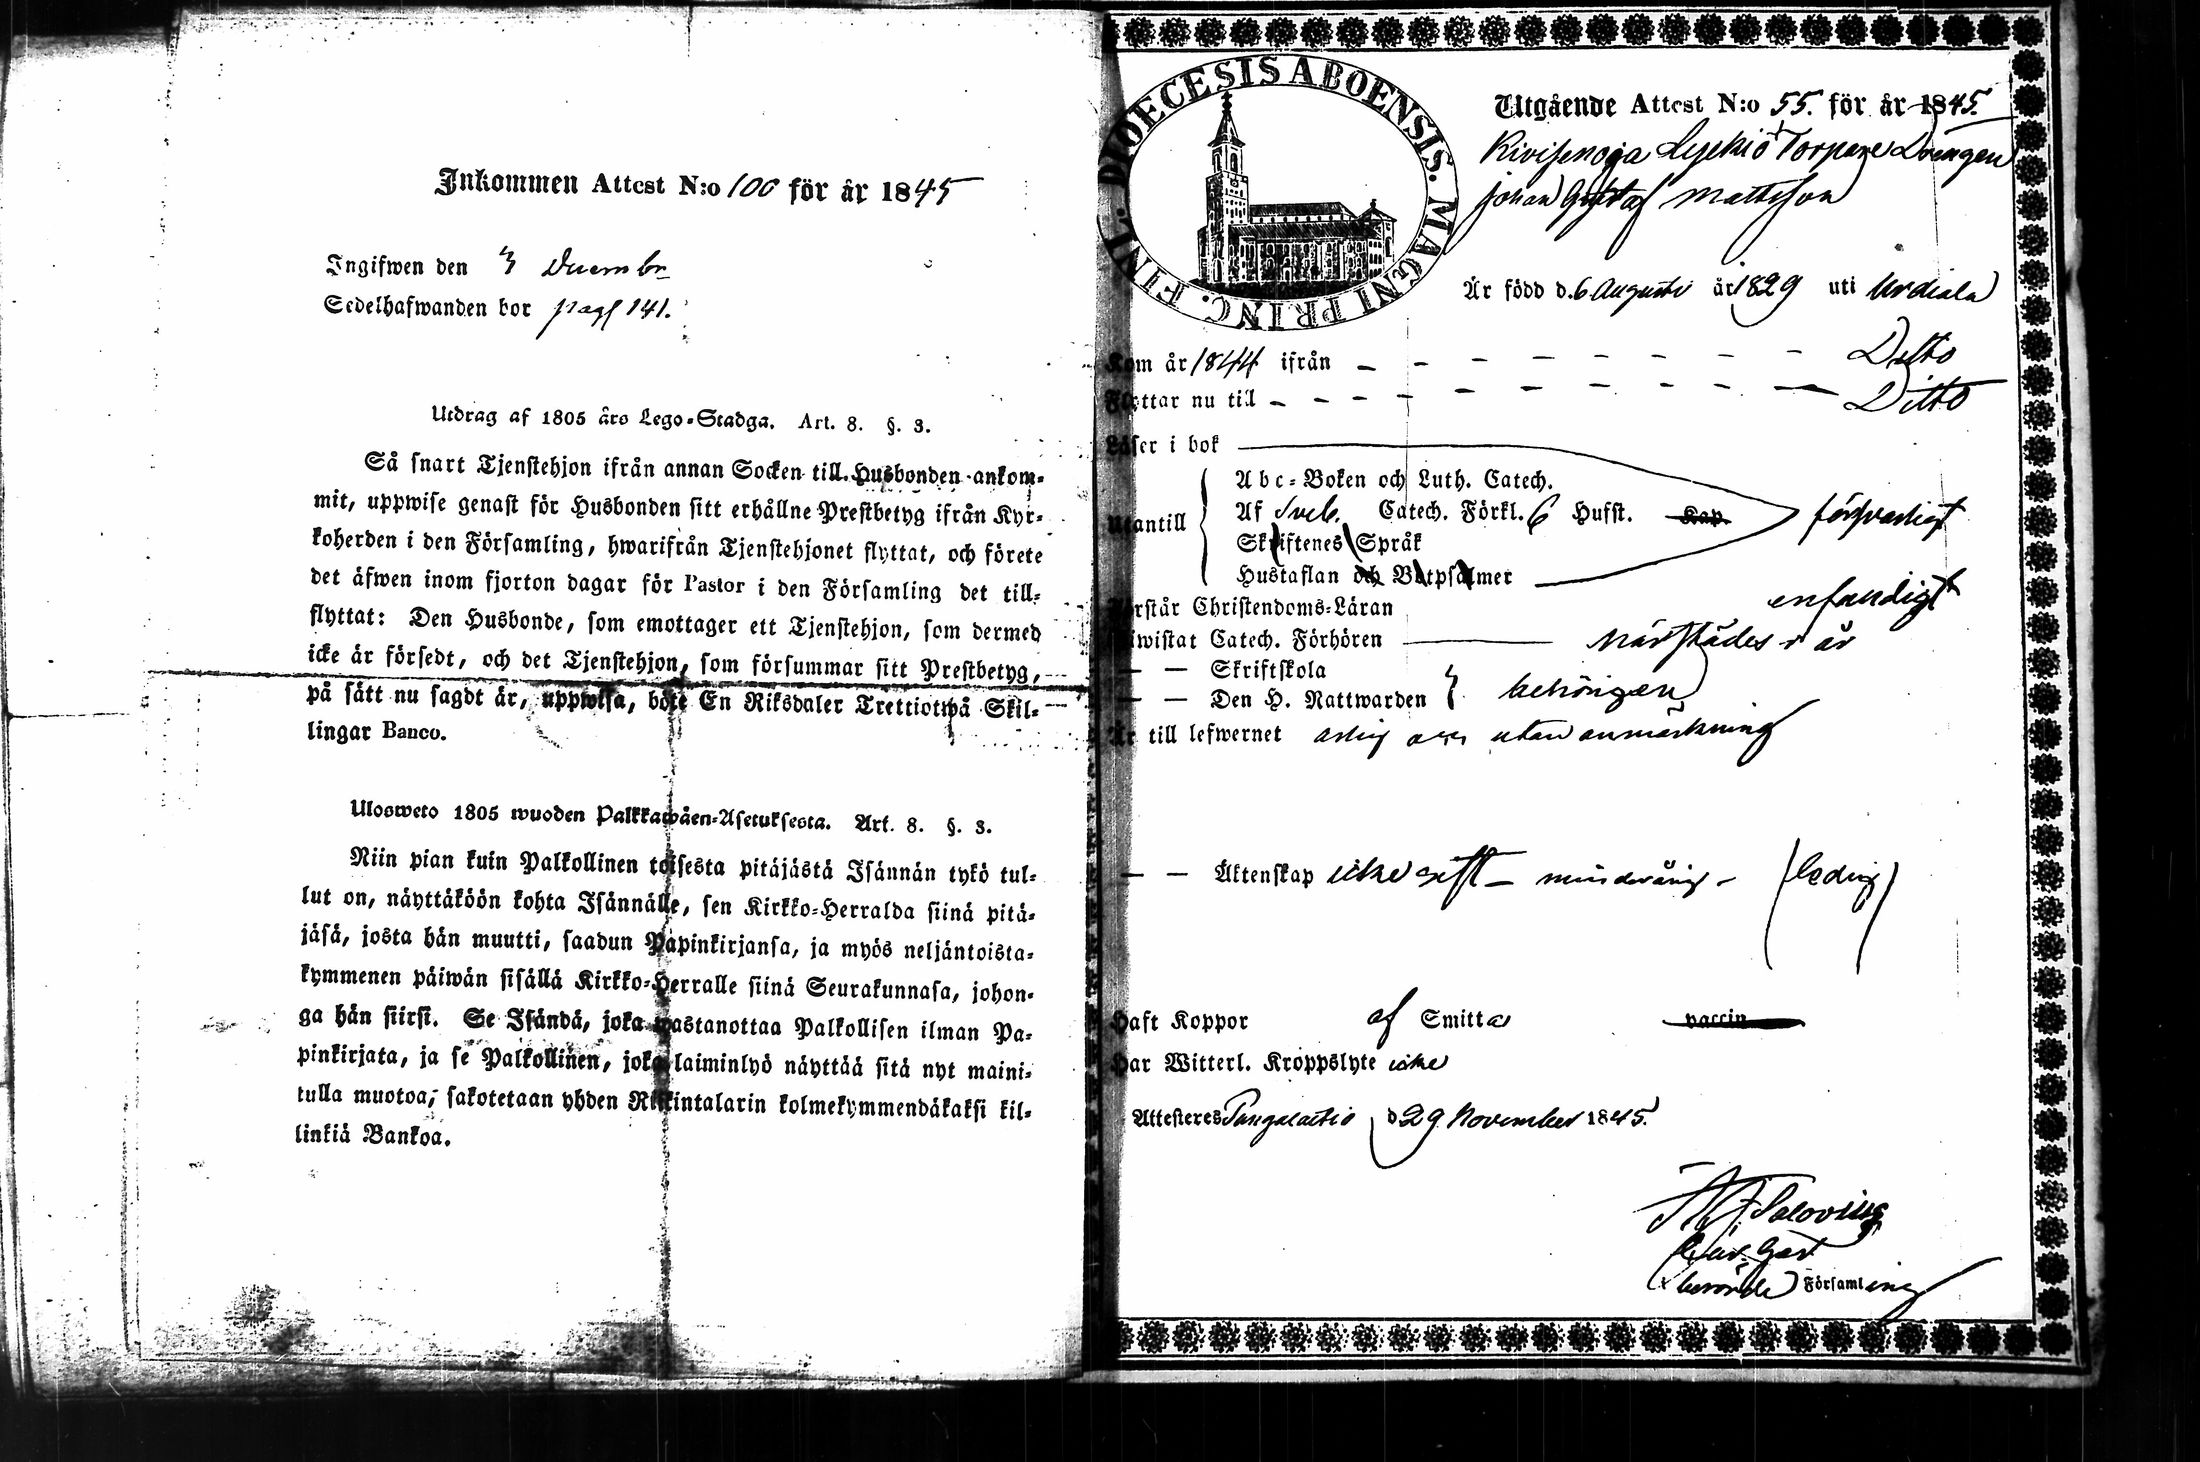 Inkommen Attest N:o 100 för år 1845
Ingifwen den 3 Decembr
Sedelhafwanden bor pag 141.
Utdrag af 1805 års Lego-Stadga. Art. 8. §. 3.
Så snart Tjenstehjon ifrån annan Socken till Husbonden ankom-
mit, uppwise genast för Husbonden sitt erhållne Prestbetyg ifrån Kyr-
koherden i den Församling, hwarifrån Tjenstehjonet flyttat, och förete
det äfwen inom fjorton dagar för Pastor i den Församling det till-
flyttat: Den Husbonde, som emottager ett Tjenstehjon, som dermed
icke är försedt, och det Tjenstehjon, som försummar sitt Prestbetyg,
på sätt nu sagdt är, uppwisa, böte En Riksdaler Trettiotwå Skil-
lingar Banco.
Ulosweto 1805 wuoden Palkkawäen-Asetuksesta. Art. 8. §. 3.
Niin pian kuin Palkollinen toisesta pitäjästä Isännän tykö tul-
lut on, näyttäköön kohta Isännälle, sen Kirkko-Herralda siinä pitä-
jäsä, josta hän muutti, saadun Papinkirjansa, ja myös neljäntoista-
kymmenen päiwän sisällä Kirkko-Herralle siinä Seurakunnasa, johon-
ga hän siirsi. Se Isändä, joka wastanottaa Palkollisen ilman Pa-
pinkirjata, ja se Palkollinen, joka laiminlyö näyttää sitä nyt maini-
tulla muotoa, sakotetaan yhden Rikintalarin kolmekymmendäkaksi kil-
linkiä Bankoa.
DIOECESIS ABOENSIS. MAGNI PRINC. FINL.
Utgående Attest N:o 55. för år 1845.
Torpare Drengen
Johan Gustaf Mattsson
Är född d. 6 Augusti år 1829 uti Urdiala
Kom år 1844 ifrån — — — — — — — Ditto
Flyttar nu till — — — — — — — Ditto
Läser i bok
Abc-Boken och Luth. Catech.
Utantill Af Sveb. Catech. Förkl. 6 Hufst. Kap. försvarligt
Skriftenes Språk
Hustaflan och Botpsalmer
Förstår Christendoms-Läran enfaldigt
Biwistat Catech. Förhören
— — Skriftskola
— — Den H. Nattwarden behörigen
Är till lefwernet utan anmärkning
— — Äktenskap icke gift — minderårig — (ledig)
Haft Koppor af Smitta vaccin
Har Witterl. Kroppslyte icke
Attesteres d. 29 November 1845.
Församling